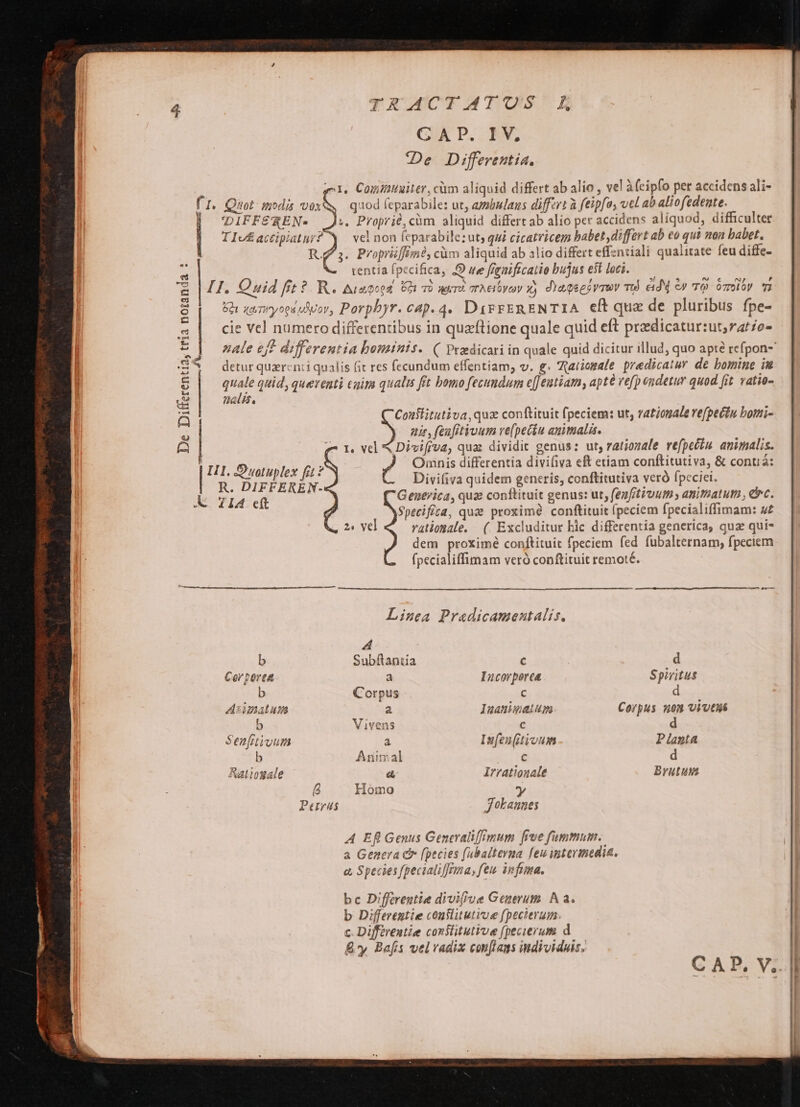 4
TRACTATUS I.
CAP. IV.
De Differentia.
De Differentia, tria notanda :
1. Communiter, cùm aliquid differt ab alio, vel à seipso per accidens ali-
I. Quot modis vox quod separabile: ut, ambulans differt à seipso, vel ab alio sedente.
DIFFEREN- 2. Propriè, cùm aliquid differt ab alio per accidens aliquod, difficulter
TIA accipiatur? vel non separabile: ut, qui cicatricem habet, differt ab eo qui non habet.
R. 3. Propriissimè, cùm aliquid ab alio differt essentiali qualitate seu diffe-
rentia specifica, ut
II. Quid sit? R. Διαφορά ἐστι τὸ κατὰ πλειόνων καὶ διαφερόντων τῷ εἴδει ἐν τῷ ὁποῖόν τι
ἐστι κατηγορούμενον, Porphyr. cap. 4. DIFFERENTIA est quæ de pluribus spe-
cie vel numero differentibus in quæstione quale quid est prædicatur: ut, ratio-
nale est differentia hominis. ( Prædicari in quale quid dicitur illud, quo aptè respon-
detur quærenti qualis sit res secundum essentiam, v. g. Rationale prædicatur de homine in
quale quid, quærenti enim qualis sit homo secundum essentiam, aptè respondetur quod sit ratio-
nalis.
Constitutiva, quæ constituit speciem: ut, rationale respectu homi-
nis, sensitivum respectu animalis.
1. vel Divisiva, quæ dividit genus: ut, rationale respectu animalis.
Omnis differentia divisiva est etiam constitutiva, & contrà:
III. Quotuplex sit?
Divisiva quidem generis, constitutiva verò speciei.
R. DIFFEREN-
Generica, quæ constituit genus: ut, sensitivum, animatum, &c.
TIA est
Specifica, quæ proximè constituit speciem specialissimam: ut
2. vel rationale. ( Excluditur hîc differentia generica, quæ qui-
dem proximè constituit speciem sed subalternam, speciem
specialissimam verò constituit remotè.
Linea Prædicamentalis.
A
b Substantia c d
Corporea a Incorporea Spiritus
b Corpus c d
Animatum a Inanimatum Corpus non vivens
b Vivens c d
Sensitivum a Insensitivum Planta
b Animal c d
Rationale α Irrationale Brutum
β Homo γ
Petrus Johannes
A Est Genus Generalissimum sive summum.
a Genera & species subalterna seu intermedia.
α Species specialissima, seu infima.
bc Differentiæ divisivæ Generum A a.
b Differentiæ constitutivæ specierum.
c Differentiæ constitutivæ specierum d
βγ Basis vel radix constans individuis.
CAP. V.